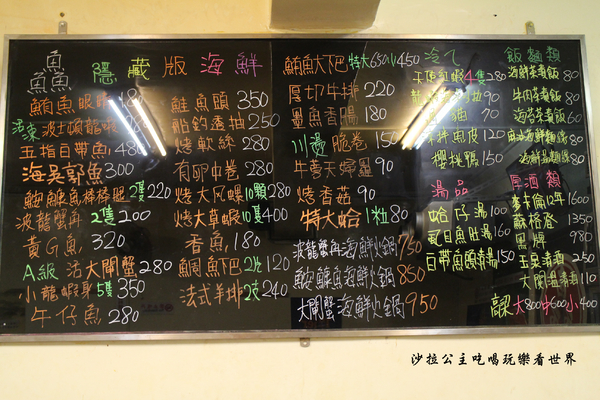 鱻 隱藏版海鮮
鮪魚眼睛180
活凍波士頓龍蝦
五指白帶魚450
海吳郭魚300
鮟鱇魚棒棒腿2隻220
波龍蟹角2隻200
黃G魚320
A級活大閘蟹280
小龍蝦身5隻350
午仔魚280
鮭魚頭350
船釣透抽250
烤軟絲280
有卵中卷280
烤大風螺10顆280
烤大草蝦10隻400
香魚180
鯛魚下巴2片120
法式羊排2支240
鮪魚大下巴特大650小450
厚切牛排220
墨魚香腸180
川燙脆卷150
牛蒡天婦羅90
烤香菇90
特大蛤1粒80
波龍蟹肉海鮮火鍋950
鮟鱇魚海鮮火鍋850
大閘蟹海鮮火鍋950
冷ㄟ
4隻280
70
90
120
櫻桃鴨150
湯品
蛤仔湯100
虱目魚肚湯160
白帶魚頭湯150
飯麵類
海鮮煮飯80
牛肉煮飯80
海苔煮飯60
麻油海鮮麵線80
海鮮烏龍麵80
厚酒類
麥卡倫12年1600
蘇格登1350
黑牌980
玉泉清酒250
大関温清酒110
高粱大800中600小400
沙拉公主吃喝玩樂看世界